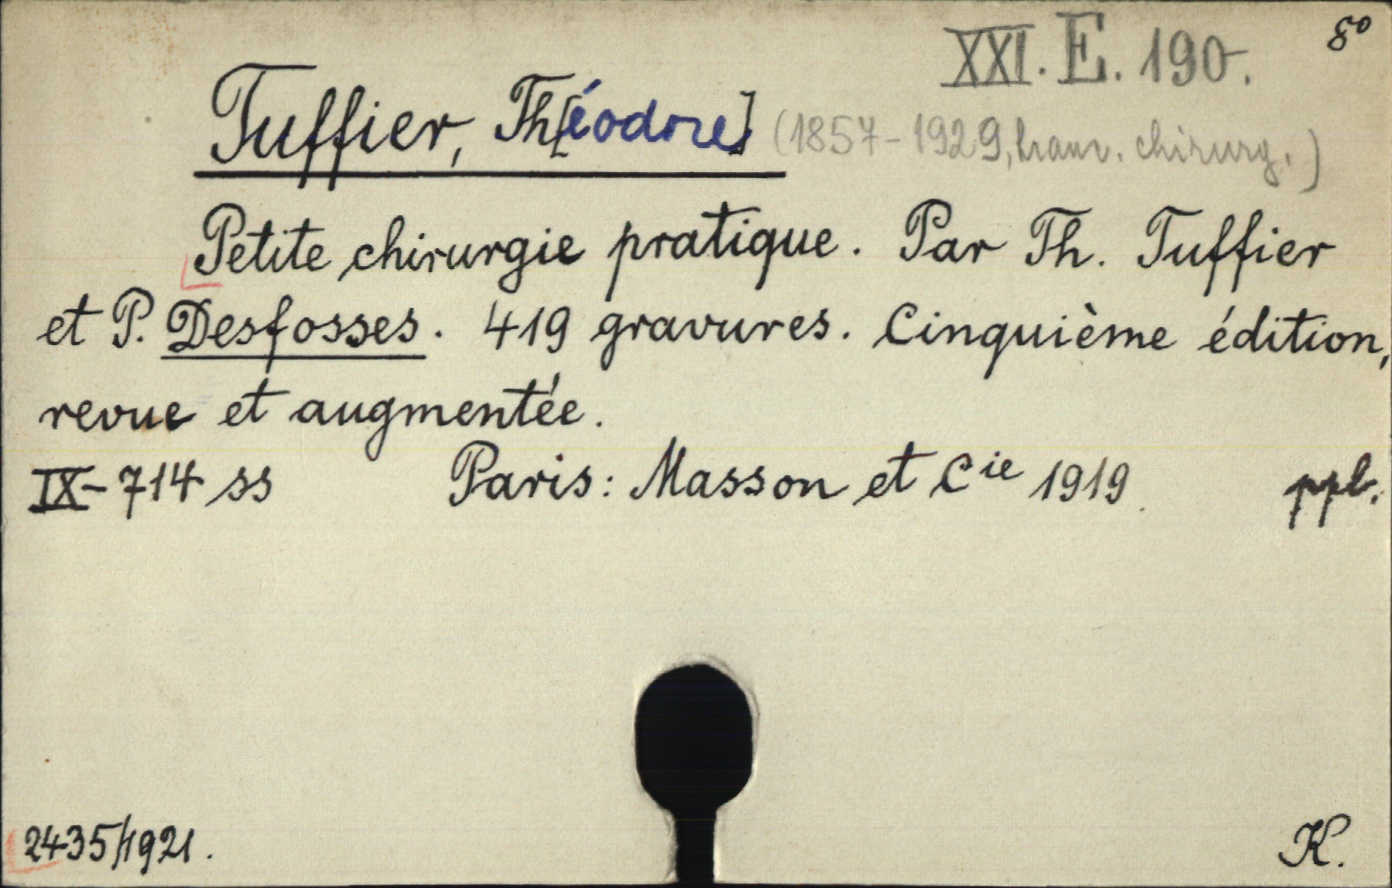 XXI. E. 190. 8º
Tuffier, Th[éodore] (1857-1929, chirurg.)
Petite chirurgie pratique. Par Th. Tuffier
et P. Desfosses. 419 gravures. Cinquième édition,
revue et augmentée.
IX-714 ss Paris: Masson et Cie 1919 ppb.
2435/1921. K.